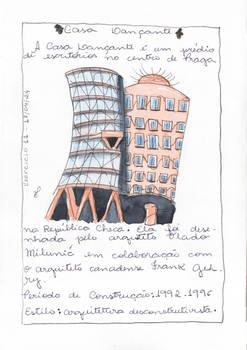 Casa Dançante
A Casa Dançante é um prédio
de escritórios no centro de Praga
Exercício 11 - 17/05/24
na República Checa. Ela foi dese-
nhada pelo arquiteto Vlado
Milunić em colaboração com
o arquiteto canadense Frank Geh-
ry.
Período de Construção: 1992-1996
Estilo: arquitetura desconstrutivista.